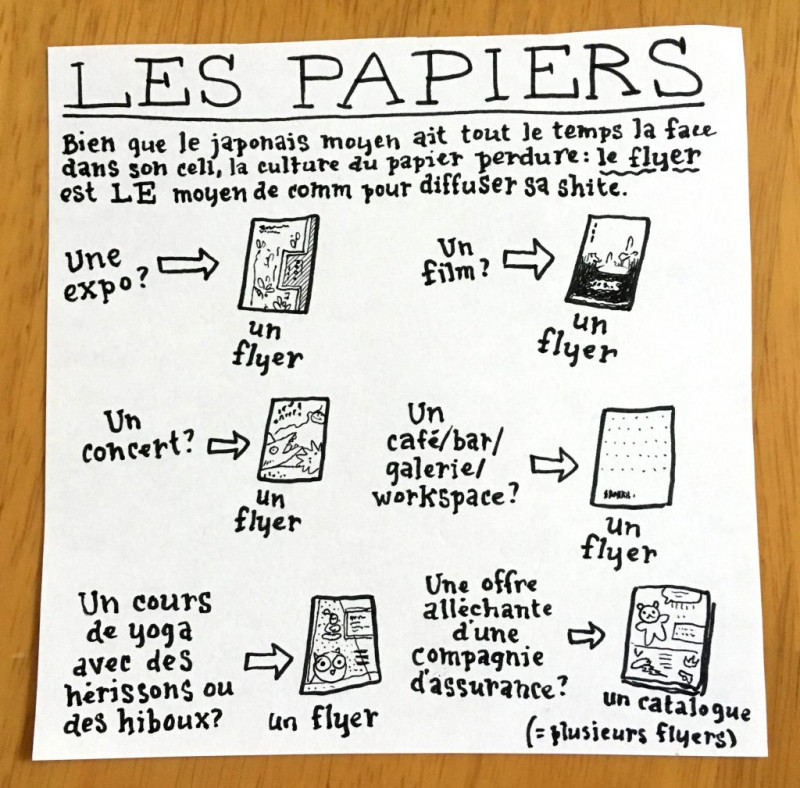 LES PAPIERS
Bien que le japonais moyen ait tout le temps la face
dans son cell, la culture du papier perdure: le flyer
est LE moyen de comm pour diffuser sa shite.
Une
expo?
un
flyer
Un
film?
un
flyer
Un
concert?
un
flyer
Un
café/bar/
galerie/
workspace?
un
flyer
Un cours
de yoga
avec des
hérissons ou
des hiboux?
un flyer
Une offre
alléchante
d'une
compagnie
d'assurance?
un catalogue
(= plusieurs flyers)